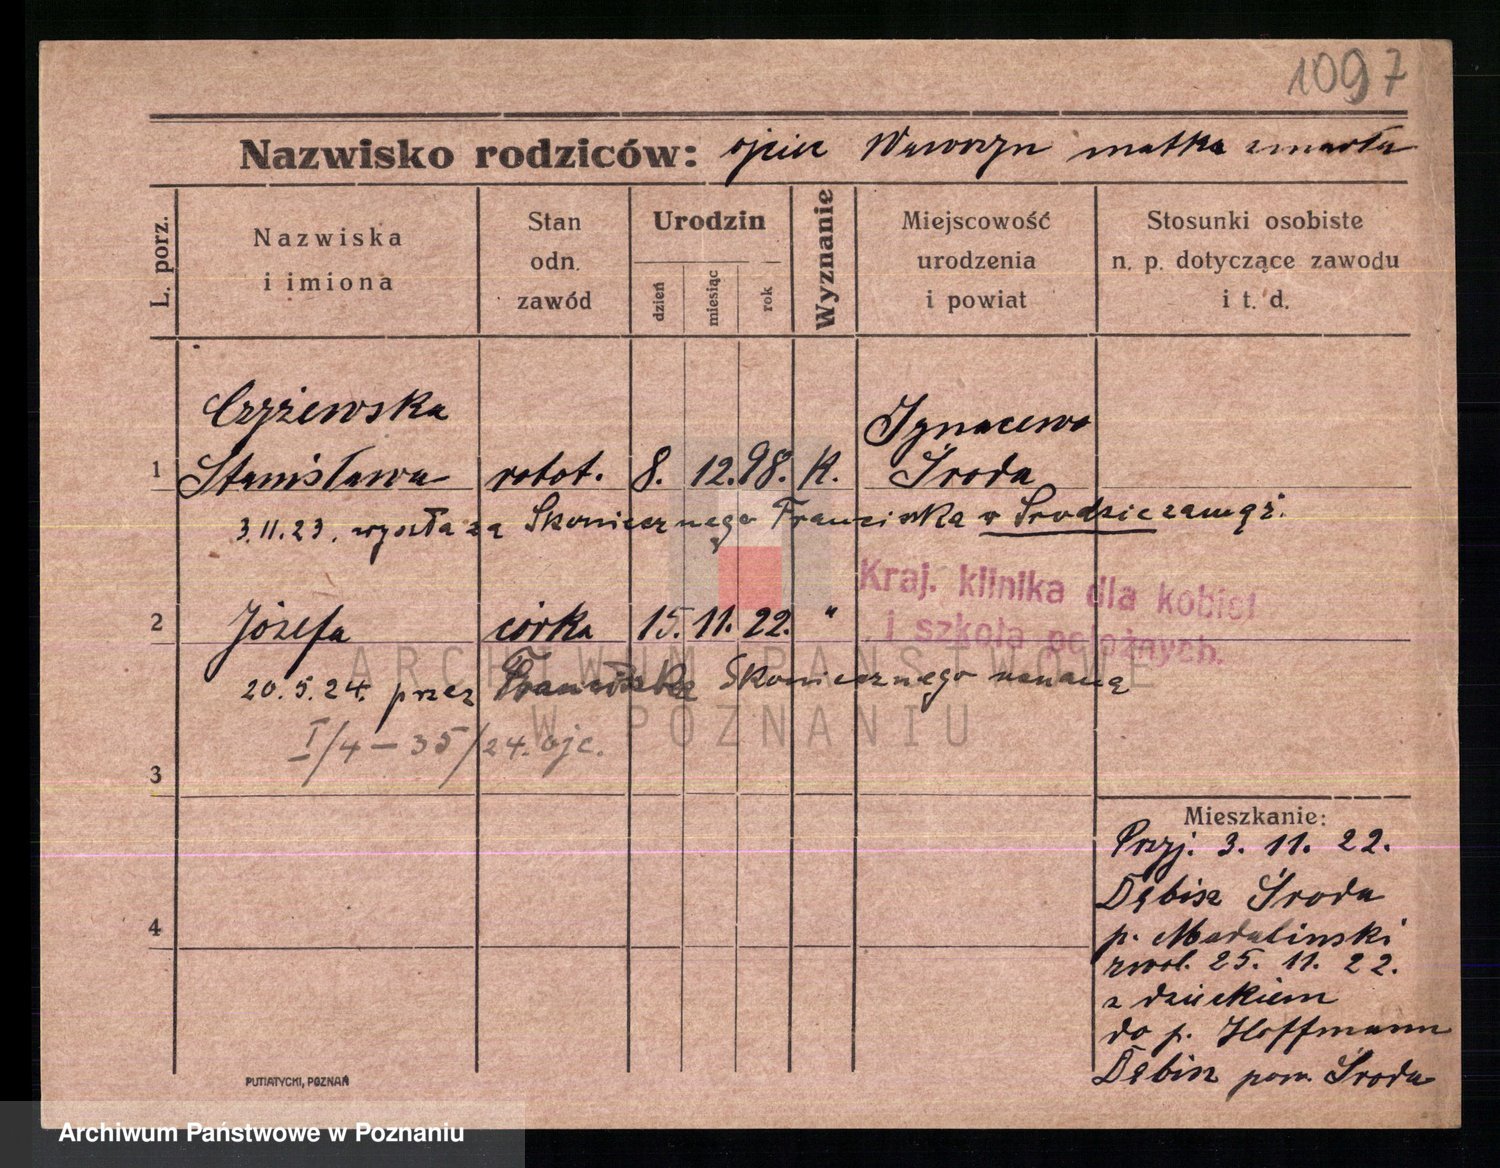 1097
Nazwisko rodziców: ojciec Wawrzyn matka zmarła
L. porz.
Nazwiska
i imiona
Stan
odn.
zawód
Urodzin
dzień
miesiąc
rok
Wyznanie
Miejscowość
urodzenia
i powiat
Stosunki osobiste
n. p. dotyczące zawodu
i t. d.
Czyżewska
Ignacewo
1 Stanisława robot. 8. 12. 98. K. Środa
3.11.23. wyszła za Skoniecznego Franciszka w Środzie zamąż.
Kraj. klinika dla kobiet
i szkoła położnych.
2 Józefa córka 15. 11. 22. "
20.5.24. przez Franciszka Skoniecznego uznaną
I/4 – 35/24. ojc.
3
Mieszkanie:
Przyj. 3. 11. 22.
Dębicz Środa
p. Madaliński
4
zwol. 25. 11. 22.
z dzieckiem
do p. Hoffmann
Dębicz pow. Środa
PUTIATYCKI, POZNAŃ
ARCHIWUM PAŃSTWOWE
W POZNANIU
Archiwum Państwowe w Poznaniu